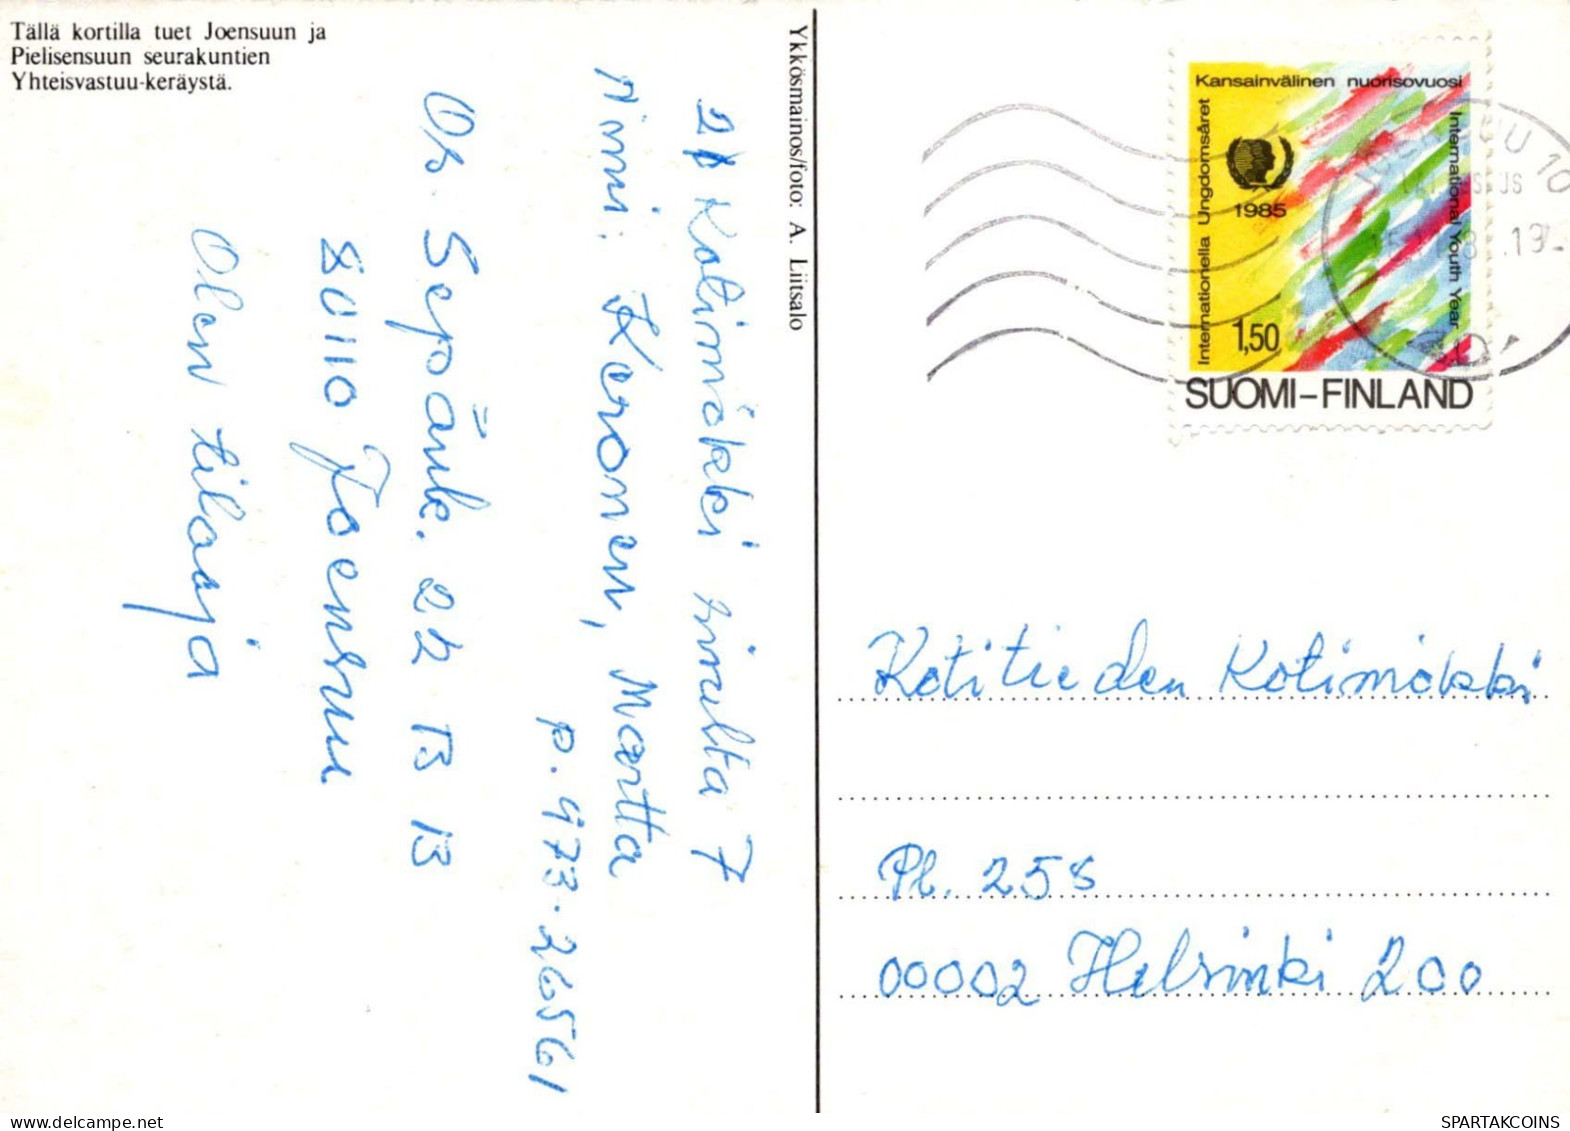 Tällä kortilla tuet Joensuun ja
Pielisensuun seurakuntien
Yhteisvastuu-keräystä.
Ykkösmainos/foto: A. Liitsalo
Kotimökki sinulta 7
Nimi: Keronen, Martta
p. 973-26561
Os. Sepänk. 22 B 13
80110 Joensuu
Olen tilaaja
Kansainvälinen nuorisovuosi
Internationella Ungdomsåret
International Youth Year
1985
1,50
SUOMI-FINLAND
10
Kotitieden Kotimökki
Pl. 258
00002 Helsinki 200
delcampe.net
SPARTAKCOINS